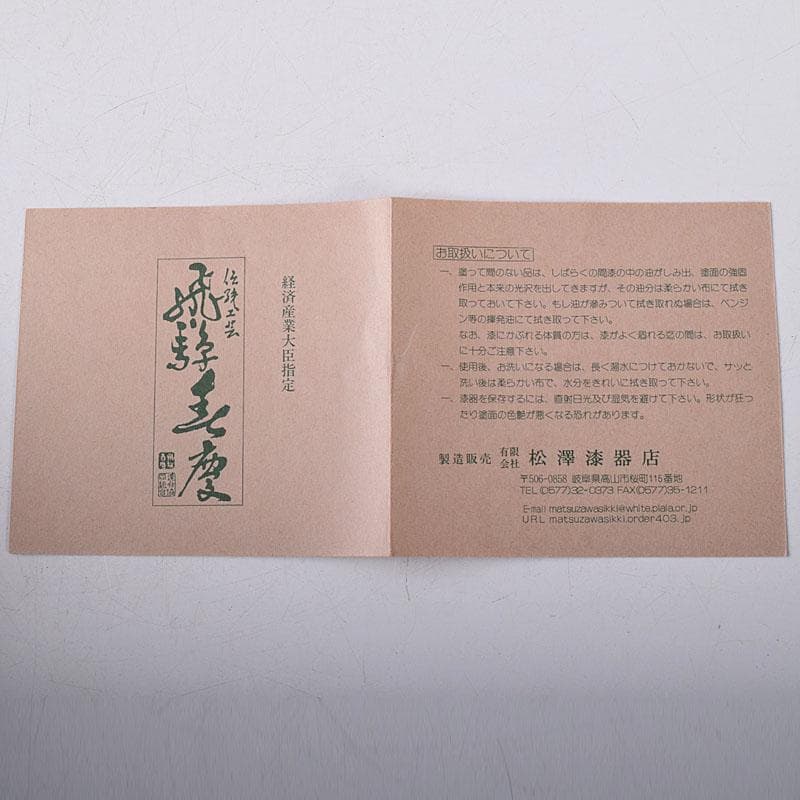 経済産業大臣指定
伝統工芸
飛騨春慶
お取扱いについて
一、塗って間のない品は、しばらくの間漆の中の油がしみ出、塗面の強固
作用と本来の光沢を出してきますが、その油分は柔らかい布にて拭き
取っておいて下さい。もし油が滲みついて拭き取れぬ場合は、ベンジ
ン等の揮発油にて拭き取って下さい。
なお、漆にかぶれる体質の方は、漆がよく涸れる迄の間は、お取扱い
に十分ご注意下さい。
一、使用後、お洗いになる場合は、長く湯水につけておかないで、サッと
洗い後は柔らかい布で、水分をきれいに拭き取って下さい。
一、漆器を保存するには、直射日光及び湿気を避けて下さい。形状が狂っ
たり塗面の色艶が悪くなる恐れがあります。
製造販売 有限会社 松澤漆器店
〒506-0858 岐阜県高山市桜町115番地
TEL(0577)32-0373 FAX(0577)35-1211
E-mail matsuzawasikki@white.plala.or.jp
URL matsuzawasikki.order403.jp